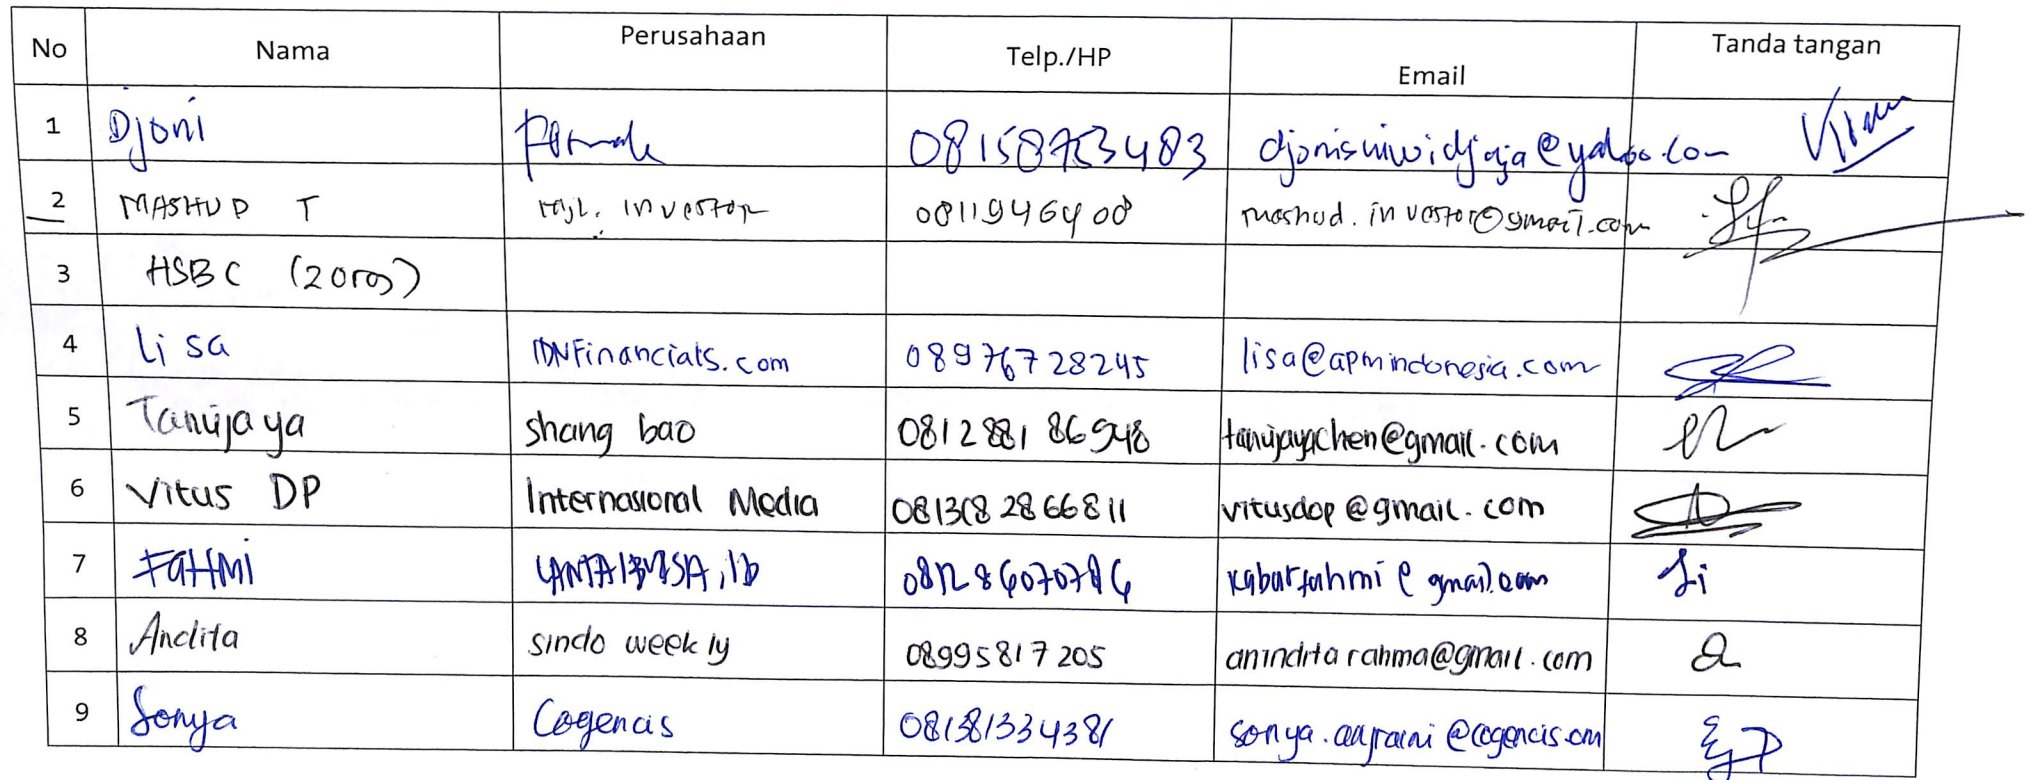 No Nama Perusahaan Telp./HP Email Tanda tangan
1 Djoni 08158753483
2 MASHUD T investor 08119464908 mashud.investor@gmail.com
3 HSBC (2 org)
4 Lisa IDNFinancials.com 08976728245 lisa@apmindonesia.com
5 Tanujaya shang bao 0812 881 86948 tanujayachen@gmail.com
6 Vitus DP Internasional Media vitusdop@gmail.com
7 FaHMI kabarfahmi@gmail.com
8 Andita sindo weekly 08995817205 aninditarahma@gmail.com
9 Sonya Cogencis 081381334381